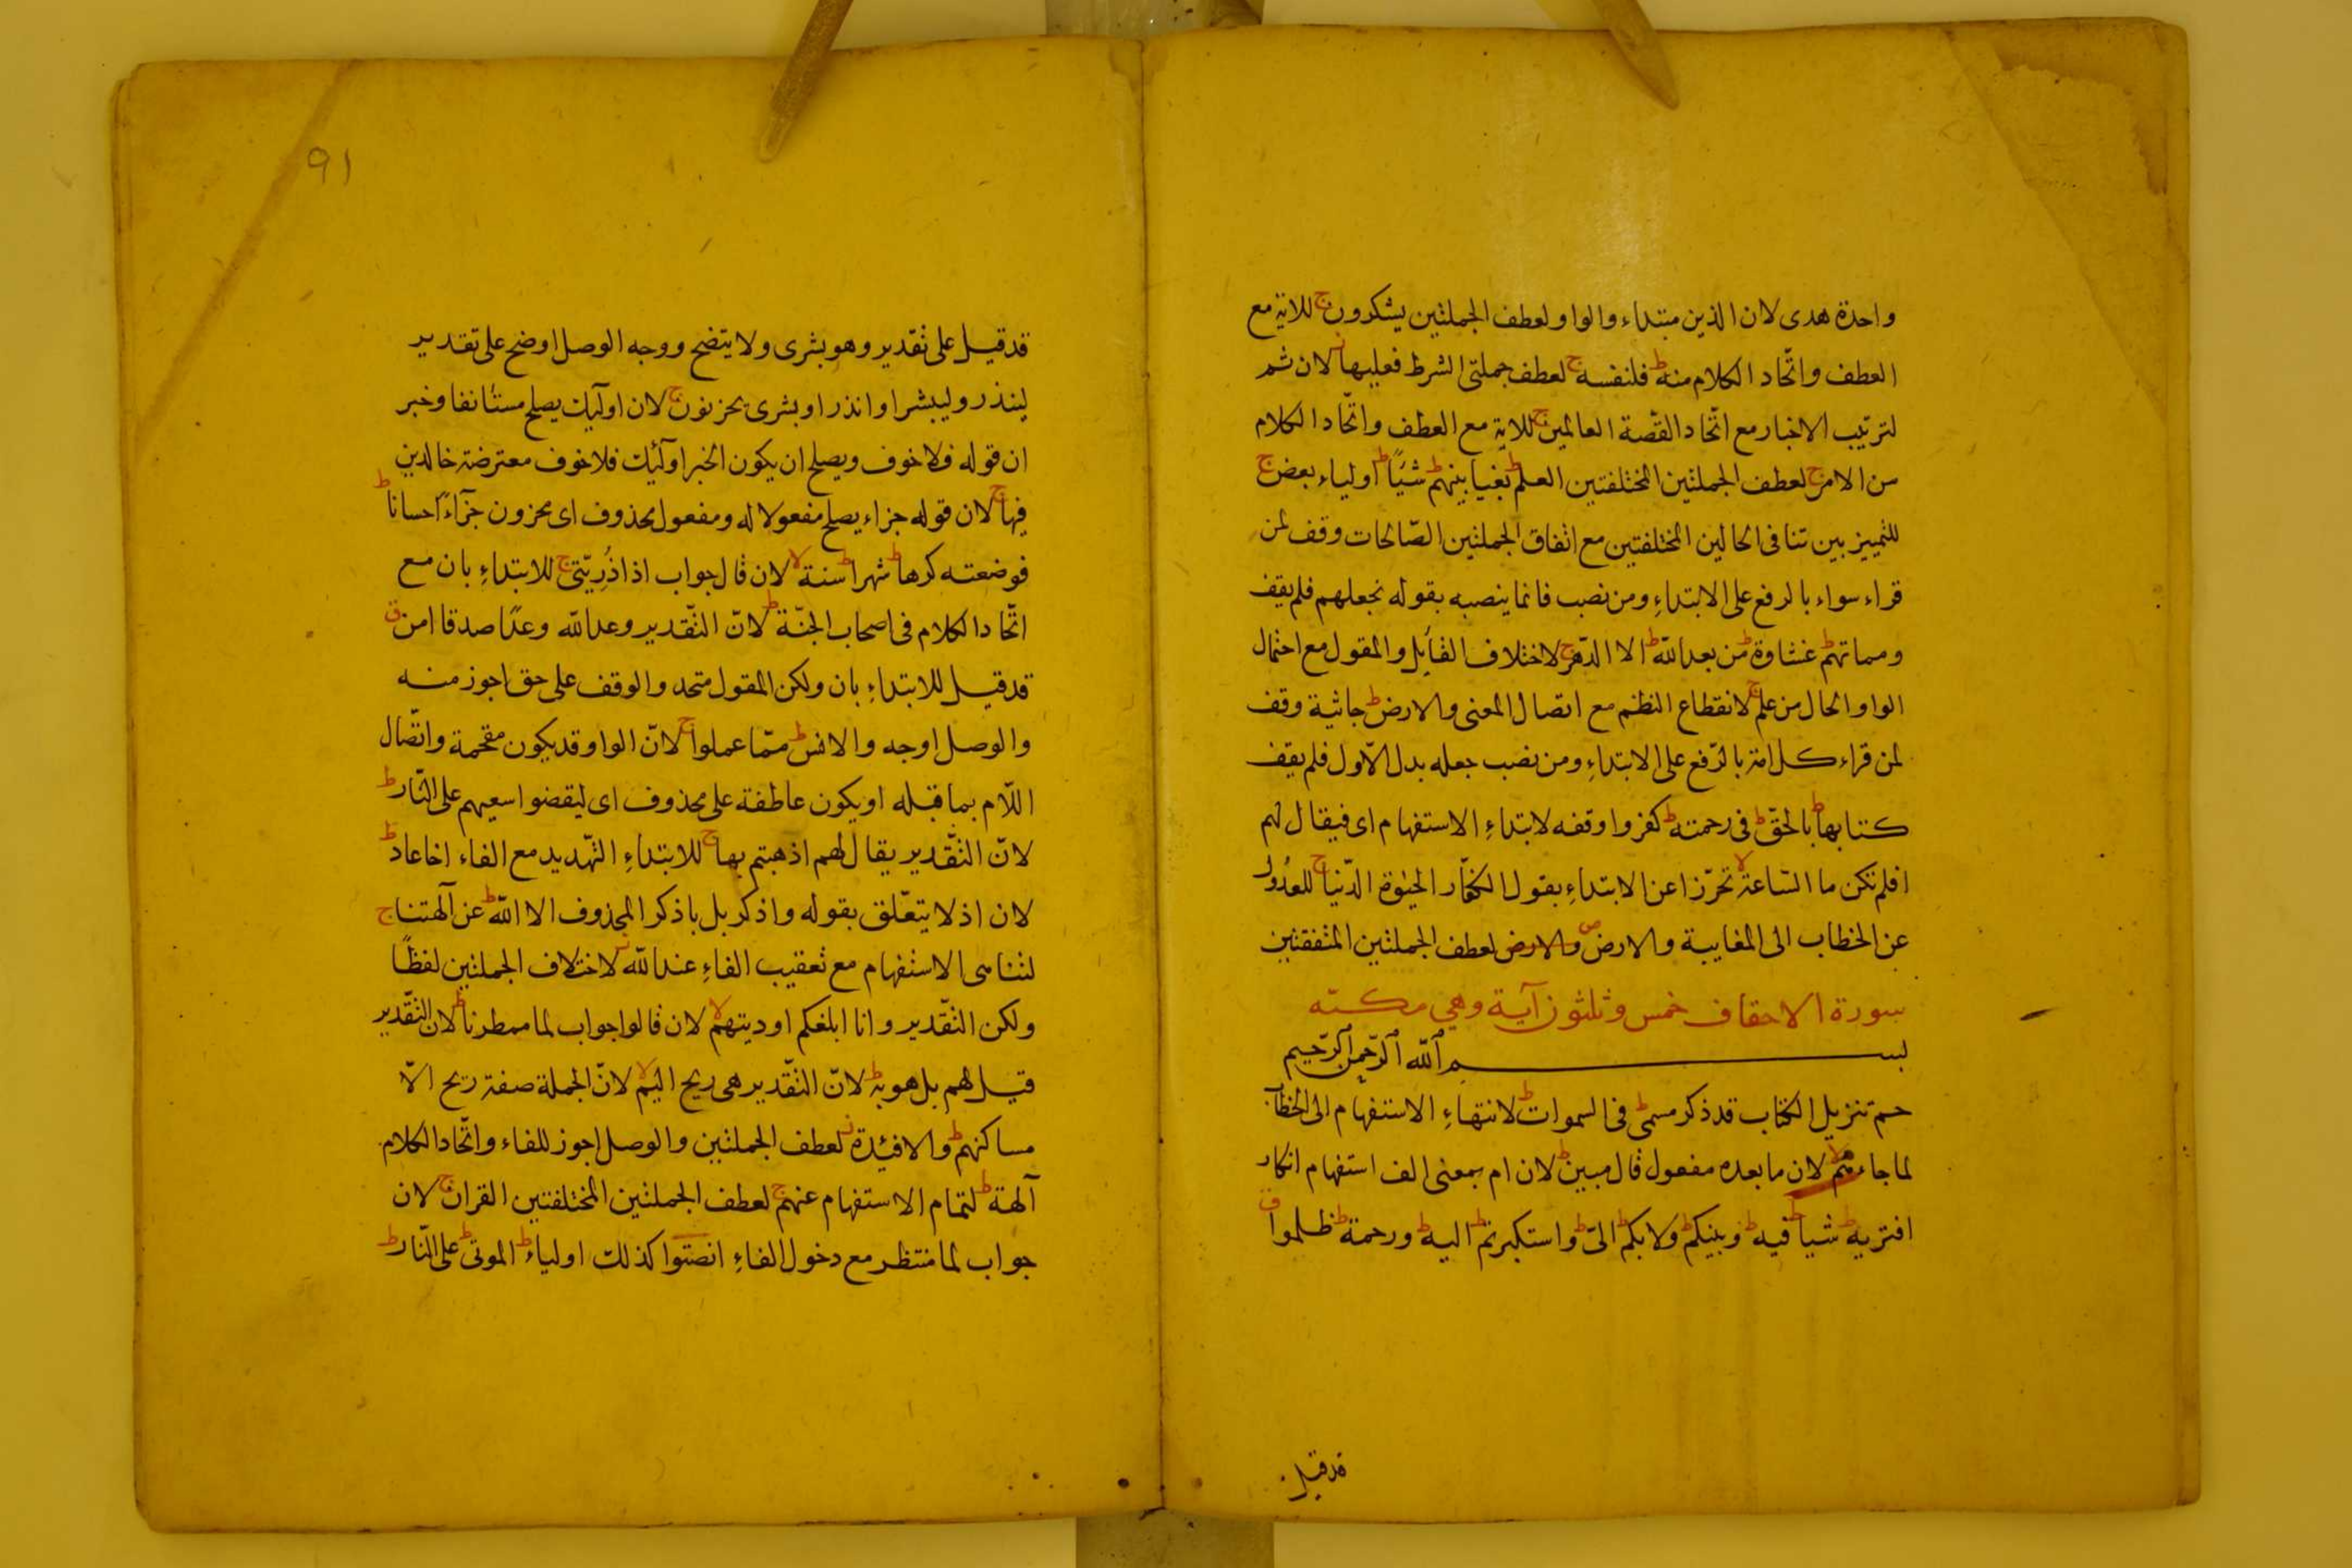 واحدة هدى لان الذين مبتداء والواو لعطف الجملتين يشكرون ج للاية مع
العطف واتّحاد الكلام منه ط فلنفسه ج لعطف جملتى الشرط فعليها ز لان ثم
لترتيب الاخبار مع اتّحاد القصة العالمين ج للاية مع العطف واتّحاد الكلام
من الامر ج لعطف الجملتين المختلفتين العلم ط بغيا بينهم ط شيًا ط اولياء بعض ج
للتمييز بين تنافى الحالين المختلفتين مع اتفاق الجملتين الصّالحات وقف لمن
قراء سواء بالرفع على الابتداءِ ومن نصب فانما ينصبه بقوله نجعلهم فلم يقف
ومماتهم ط غشاوة ط من بعد الله ط الا الدّهر ج لاختلاف القائل والمقول مع احتمال
الواو الحال من علم ج لانقطاع النظم مع اتصال المعنى والارض ط جاثية وقف
لمن قراء كل امة بالرّفع على الابتداءِ ومن نصب جعله بدل الاّول فلم يقف
كتابها ط بالحقّ ط فى رحمته ط كفروا وقفه لابتداءِ الاستفهام اى فيقال لهم
افلم تكن ما السّاعة لا تحرّزا عن الابتداءِ بقول الكفّار الحيٰوة الدّنيا ج للعدُول
عن الخطاب الى المغايبة والارض ص والارض لعطف الجملتين المتفقتين
سورة الاحقاف خمس وثلثون آية وهى مكيّه
بسم الله الرّحمن الرّحيم
حم تنزيل الكتاب قد ذكر مسمى ط فى السموات ط لانتهاءِ الاستفهام الى الخطاب
لما جاءهم لا لان ما بعده مفعول قال مبين ط لان ام بمعنى الف استفهام انكار
افتريه ط شيا ط فيه ط وبينكم ط ولا بكم ط الىّ ط واستكبرتم ط اليه ط ورحمة ط ظلموا ق
قد قيل
٩١
قد قيل على تقدير وهو بشرى ولا يتضح ووجه الوصل اوضح على تقدير
لينذر وليبشر او انذر او بشرى يحزنون ج لان اولٓيك يصلح مستٔانفا وخبر
ان قوله فلا خوف ويصلح ان يكون الخبر اولٓئك فلا خوف معترضة خالدين
فيها ج لان قوله جزاء يصلح مفعولا له ومفعول محذوف اى يجزون جزآءً احسانا ط
فوضعته كرها ط شهرا ط سنة لا لان قال جواب اذا ذُرِيّتى ج للابتداءِ بان مع
اتّحاد الكلام فى اصحاب الجنّة ط لانّ التّقدير وعد الله وعدًا صدقا امن ق
قد قيل للابتداءِ بان ولكن المقول متحد والوقف على حق اجوز منه
والوصل اوجه والانس ط ممّا عملوا ج لانّ الواو قد يكون مقحمة واتّصال
اللّام بما قبله او يكون عاطفة على محذوف اى ليقضوا سعيهم على النّار ط
لانّ التّقدير يقال لهم اذهبتم بها ج للابتداءِ التّهديد مع الفاء اخا عاد ط
لان اذ لا يتعّلق بقوله واذكر بل باذكر المحذوف الا اللّٰه ط عن آلهتنا ج
لتنامى الاستفهام مع تعقيب الفاءِ عند اللّٰه ز لاختلاف الجملتين لفظًا
ولكن التّقدير وانا ابلغكم اوديتهم لا لان قالوا جواب لما ممطرنا ط لان التّقدير
قيل لهم بل هو به ط لانّ التّقدير هى ريح اليم لا لانّ الجملة صفة ريح الاّ
مساكنهم ط والافئدة ز لعطف الجملتين والوصل اجوز للفاء واتّحاد الكلام
آلهة ط لتمام الاستفهام عنهم ج لعطف الجملتين المختلفتين القران ج لان
جواب لما منتظر مع دخول الفاءِ انصتوا كذلك اولياء ط الموتى ط على النّار ط